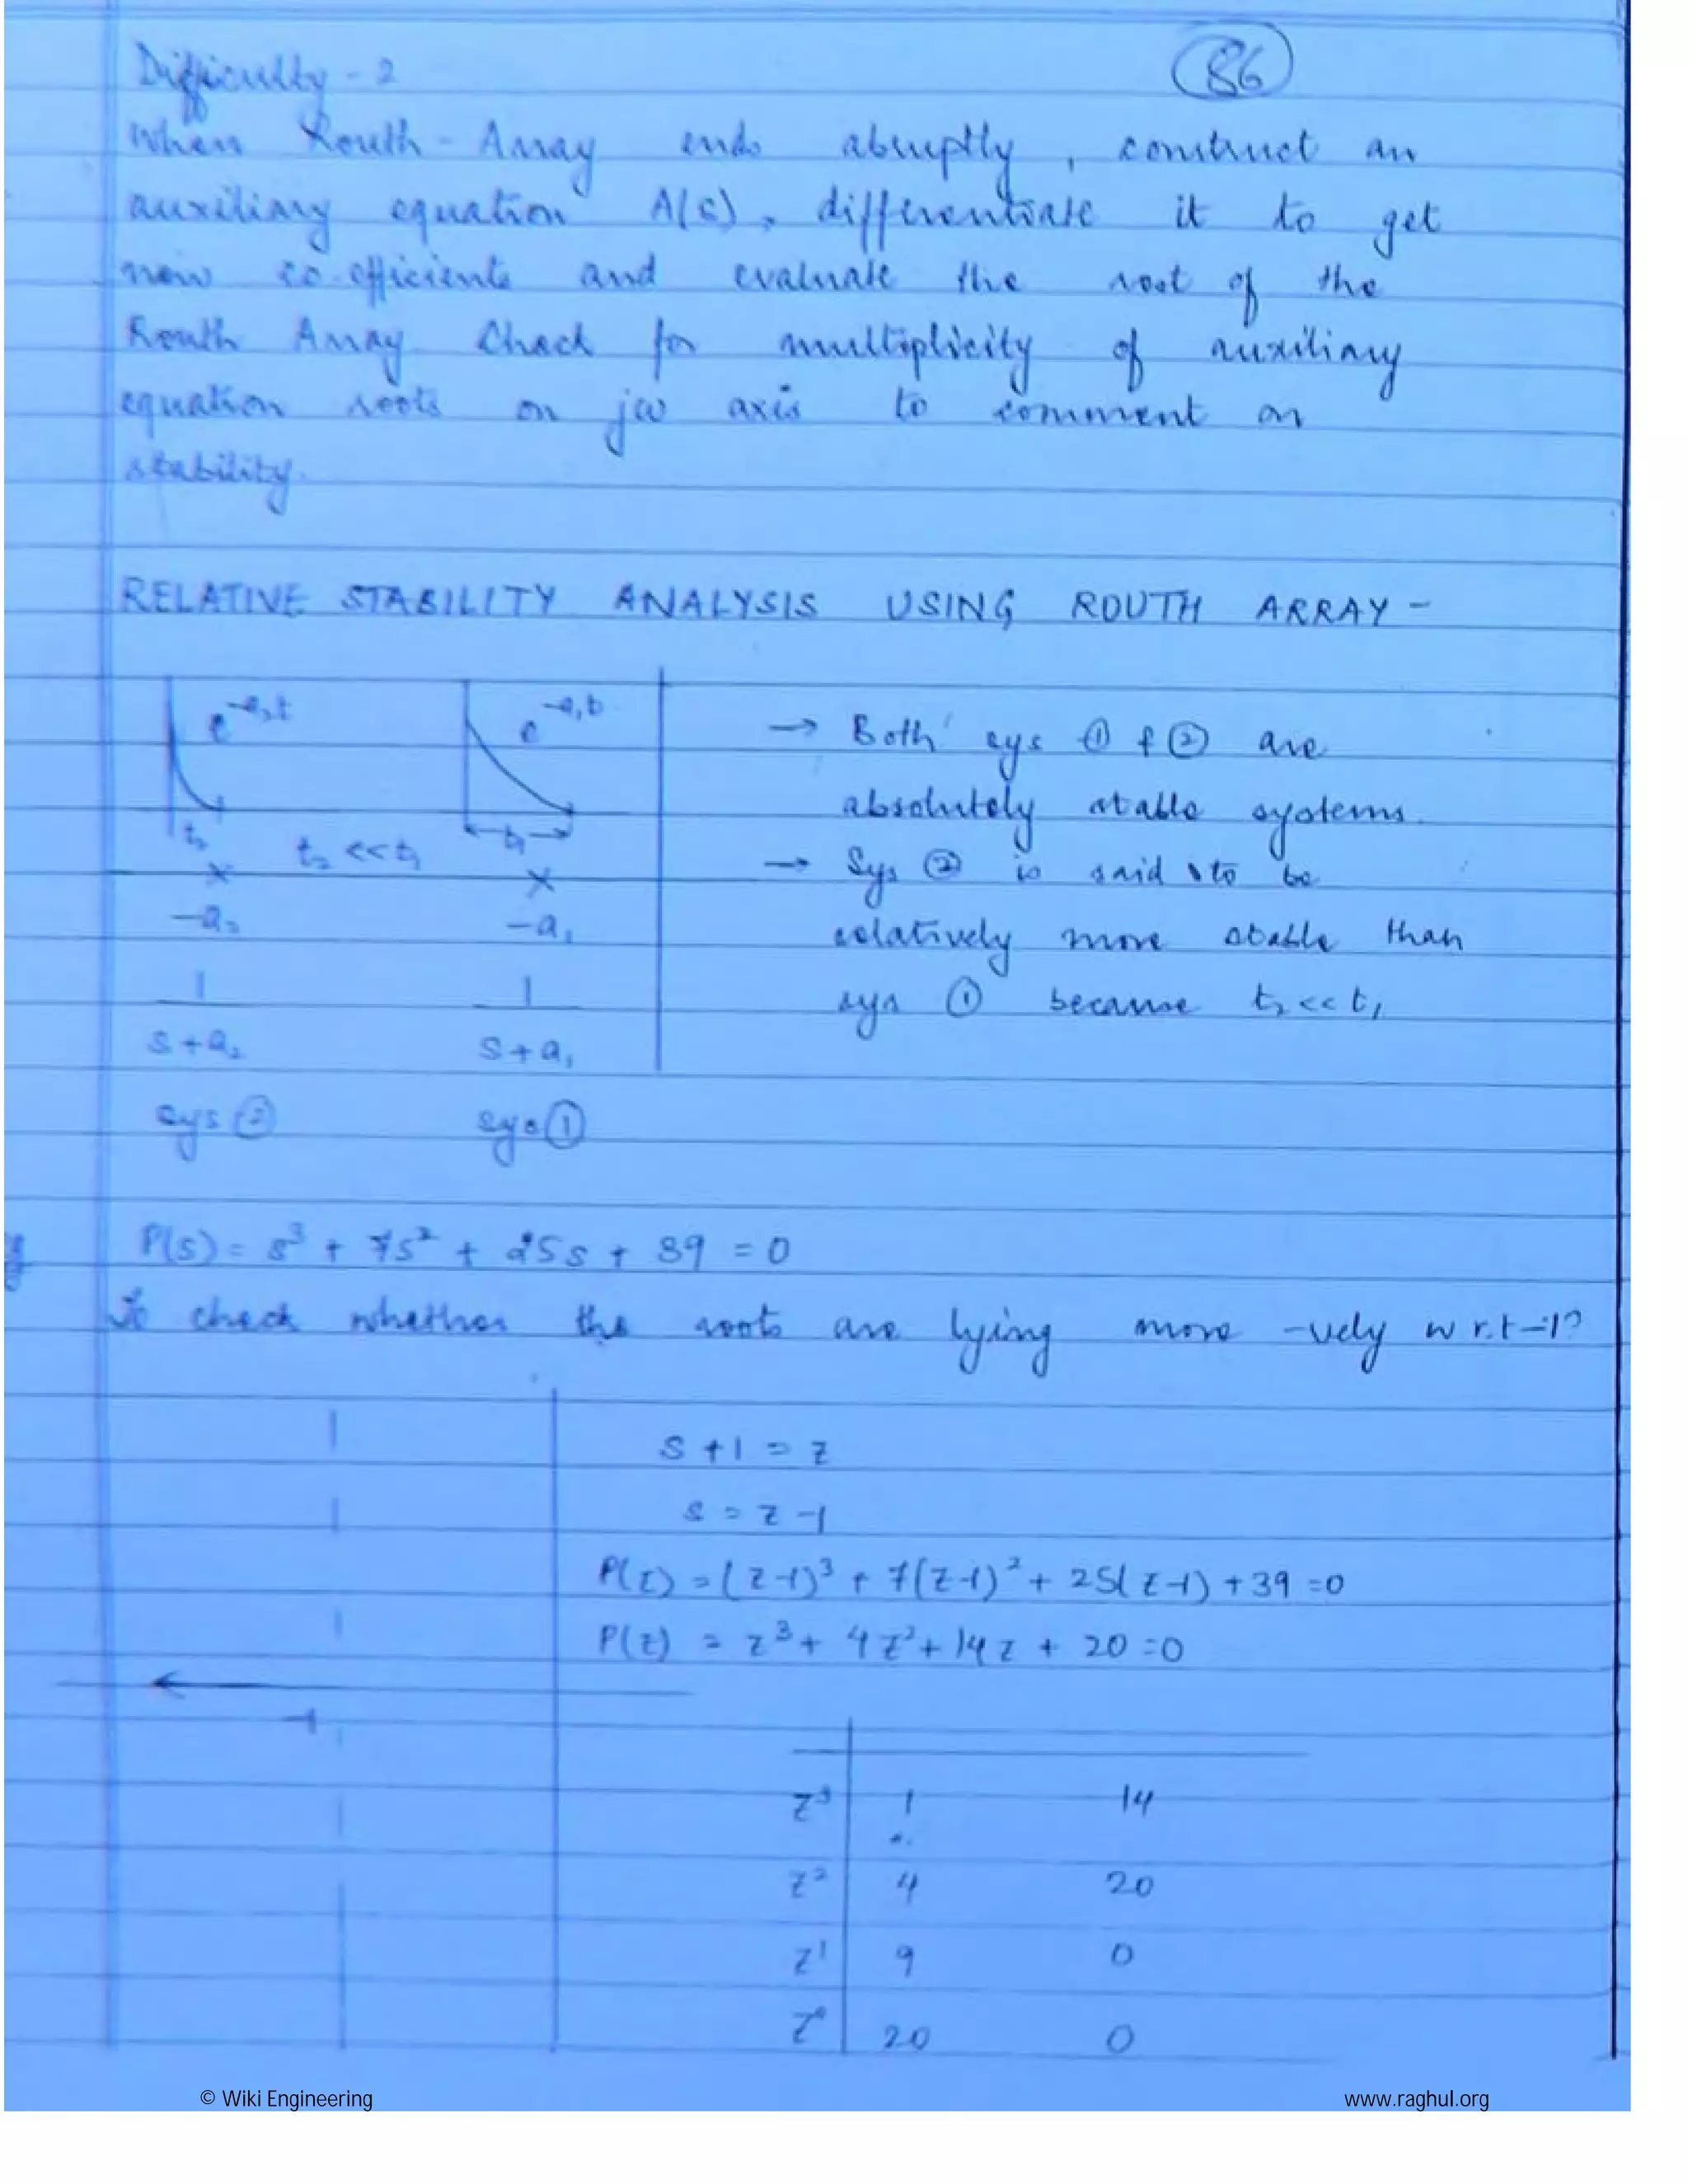 Difficulty - 2
86
When Routh - Array ends abruptly, construct an
auxiliary equation A(s), differentiate it to get
new co-efficients and evaluate the rest of the
Routh Array Check for multiplicity of auxiliary
equation roots on jω axis to comment on
stability.
RELATIVE STABILITY ANALYSIS USING ROUTH ARRAY -
e^-a₂t
e^-a₁t
t₂
t₂ << t₁
t₁
-a₂
-a₁
1
1
s+a₂
s+a₁
sys ②
sys ①
→ Both sys ① & ② are
absolutely stable systems.
→ Sys ② is said to be
relatively more stable than
sys ① because t₂ << t₁
P(s) = s³ + 7s² + 25s + 39 = 0
To check whether the roots are lying more -vely w r.t -1?
s + 1 = z
s = z - 1
P(z) = (z-1)³ + 7(z-1)² + 25(z-1) + 39 = 0
P(z) = z³ + 4z² + 14z + 20 = 0
-1
z³ 1 14
z² 4 20
z¹ 9 0
z⁰ 20 0
© Wiki Engineering
www.raghul.org